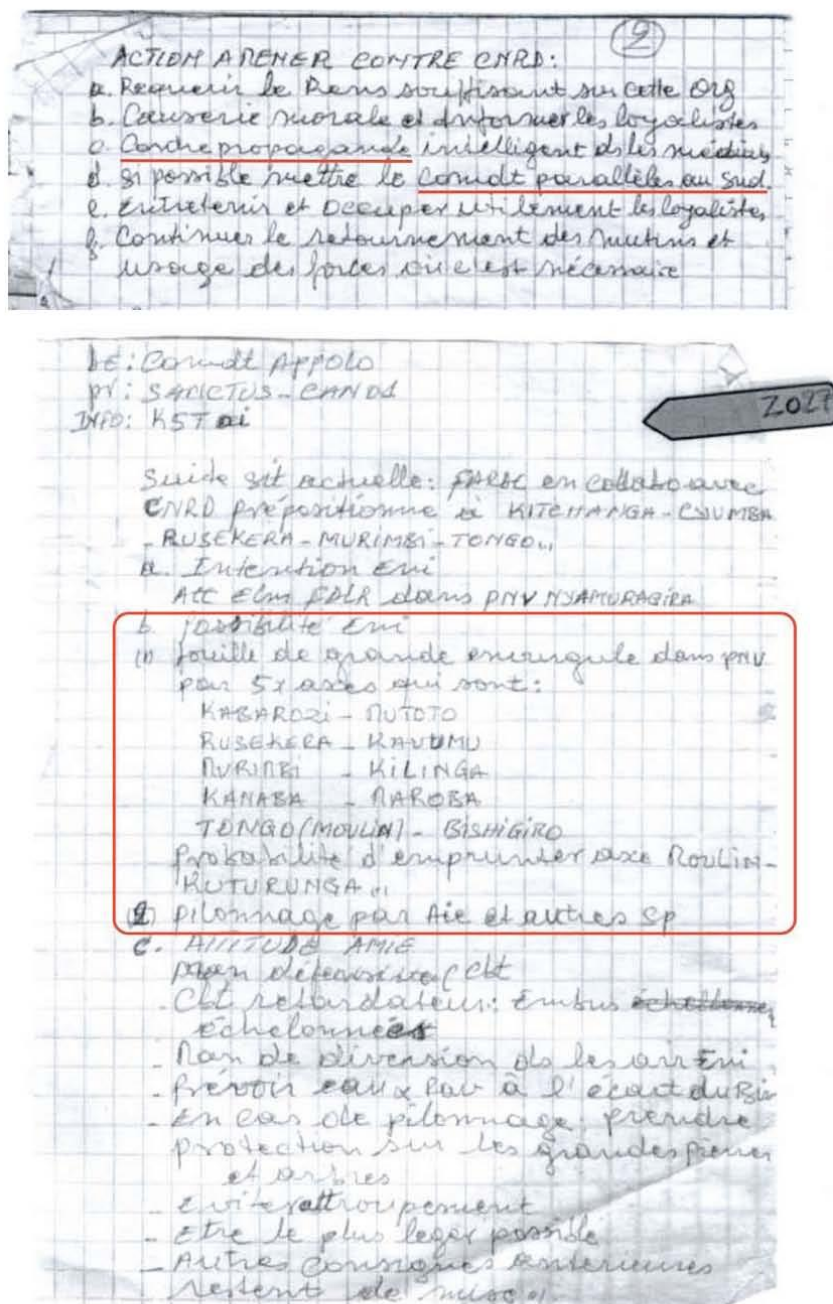 2
ACTION A MENER CONTRE CNRD:
a. Requerir le Rens suffisant sur cette Org
b. Causerie morale et informer les loyalistes
c. Contrepropagande intelligent ds les médias
d. si possible mettre le Comdt parallèles au Sud.
e. Entretenir et occuper utilement les loyalistes
f. Continuer le retournement des mutins et
usage des forces où c'est nécessaire
De: Comdt APPOLO
Pr: SANCTUS - CANDA
INFO: KST
2027
Suide sit actuelle: FARDC en collabo avec
CNRD prépositionne à KITCHANGA - CYUMBA
- RUSEKERA - MURIMBI - TONGO
a. Intention Eni
Att Elm FDLR dans PNV NYAMURAGIRA
b. possibilité Eni
(1) fouille de grande envergule dans PNV
par 5x axes qui sont:
KABAROZI - MUTOTO
RUSEKERA - KAVUMU
MURIMBI - KILINGA
KANABA - MAROBA
TONGO (MOULIN) - BISHIGIRO
Probabilité d'emprunter axe MOULIN-
RUTURUNGA
(2) Pilonnage par Aie et autres Sp
c. ATTITUDE AMIE
Plan défensive Cbt
- Cbt retardateur: Embus
échelonnées
- Plan de diversion ds les arr Eni
- Prévoir eau & Rav à l'écart du
- En cas de pilonnage: prendre
protection sur les grandes pierres
et arbres
- Eviter attroupement
- Etre le plus leger possible
- Autres consignes anterieures
restent de mise